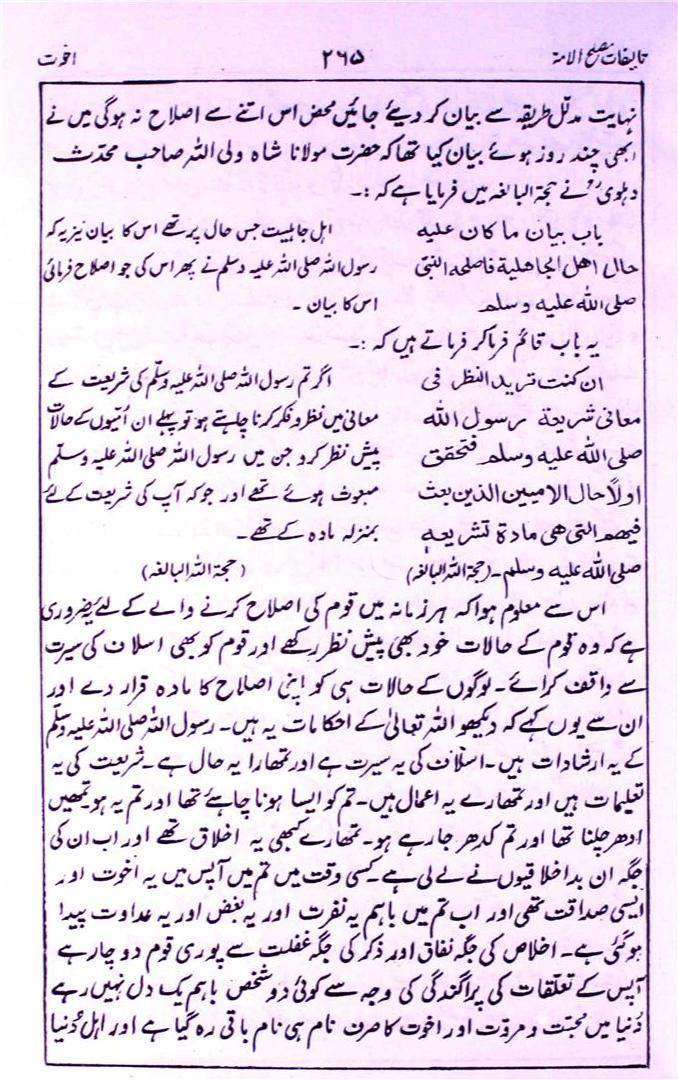 تالیفات مصلح الامۃ ۲۶۵ اخوت
نہایت مدلّل طریقہ سے بیان کر دیئے جائیں محض اس اتنے سے اصلاح نہ ہوگی میں نے
ابھی چند روز ہوئے بیان کیا تھا کہ حضرت مولانا شاہ ولی اللہ صاحب محدّث
دہلویؒ نے حجۃ البالغہ میں فرمایا ہے کہ :۔
باب بیان ما کان علیه
حال اھل الجاھلیة فاصلحه النبی
صلی اللہ علیه وسلم
اہل جاہلیت جس حال پر تھے اس کا بیان نیز یہ کہ
رسول اللہ صلی اللہ علیہ وسلم نے پھر اس کی جو اصلاح فرمائی
اس کا بیان ۔
یہ باب قائم فرما کر فرماتے ہیں کہ :۔
ان کنت ترید النظر فی
معانی شریعة رسول اللہ
صلی اللہ علیه وسلم فتحقق
اولاً حال الامیین الذین بعث
فیھم التی ھی مادة تشریعه
صلی اللہ علیه وسلم۔ (حجۃ اللہ البالغہ)
اگر تم رسول اللہ صلی اللہ علیہ وسلّم کی شریعت کے
معانی میں نظر و فکر کرنا چاہتے ہو تو پہلے ان اُمّیوں کے حالات
پیش نظر کرو جن میں رسول اللہ صلی اللہ علیہ وسلّم
مبعوث ہوئے تھے اور جو کہ آپ کی شریعت کے لئے
بمنزلہ مادہ کے تھے ۔
(حجۃ اللہ البالغہ)
اس سے معلوم ہوا کہ ہر زمانہ میں قوم کی اصلاح کرنے والے کے لئے یہ ضروری
ہے کہ وہ قوم کے حالات خود بھی پیش نظر رکھے اور قوم کو بھی اسلاف کی سیرت
سے واقف کرائے ۔ لوگوں کے حالات ہی کو اپنی اصلاح کا مادہ قرار دے اور
ان سے یوں کہے کہ دیکھو اللہ تعالیٰ کے احکامات یہ ہیں ۔ رسول اللہ صلی اللہ علیہ وسلّم
کے یہ ارشادات ہیں ۔ اسلاف کی یہ سیرت ہے اور تمھارا یہ حال ہے ۔ شریعت کی یہ
تعلیمات ہیں اور تمھارے یہ اعمال ہیں ۔ تم کو ایسا ہونا چاہئے تھا اور تم یہ ہو تمھیں
ادھر چلنا تھا اور تم کدھر جا رہے ہو ۔ تمھارے کبھی یہ اخلاق تھے اور اب ان کی
جگہ ان بداخلاقیوں نے لے لی ہے ۔ کسی وقت میں تم میں آپس میں یہ اخوت اور
ایسی صداقت تھی اور اب تم میں باہم یہ نفرت اور یہ بغض اور یہ عداوت پیدا
ہو گئی ہے ۔ اخلاص کی جگہ نفاق اور ذکر کی جگہ غفلت سے پوری قوم دوچار ہے
آپس کے تعلقات کی پراگندگی کی وجہ سے کوئی دو شخص باہم یک دل نہیں رہے
دُنیا میں محبّت و مروّت اور اخوت کا صرف نام ہی نام باقی رہ گیا ہے اور اہل دُنیا